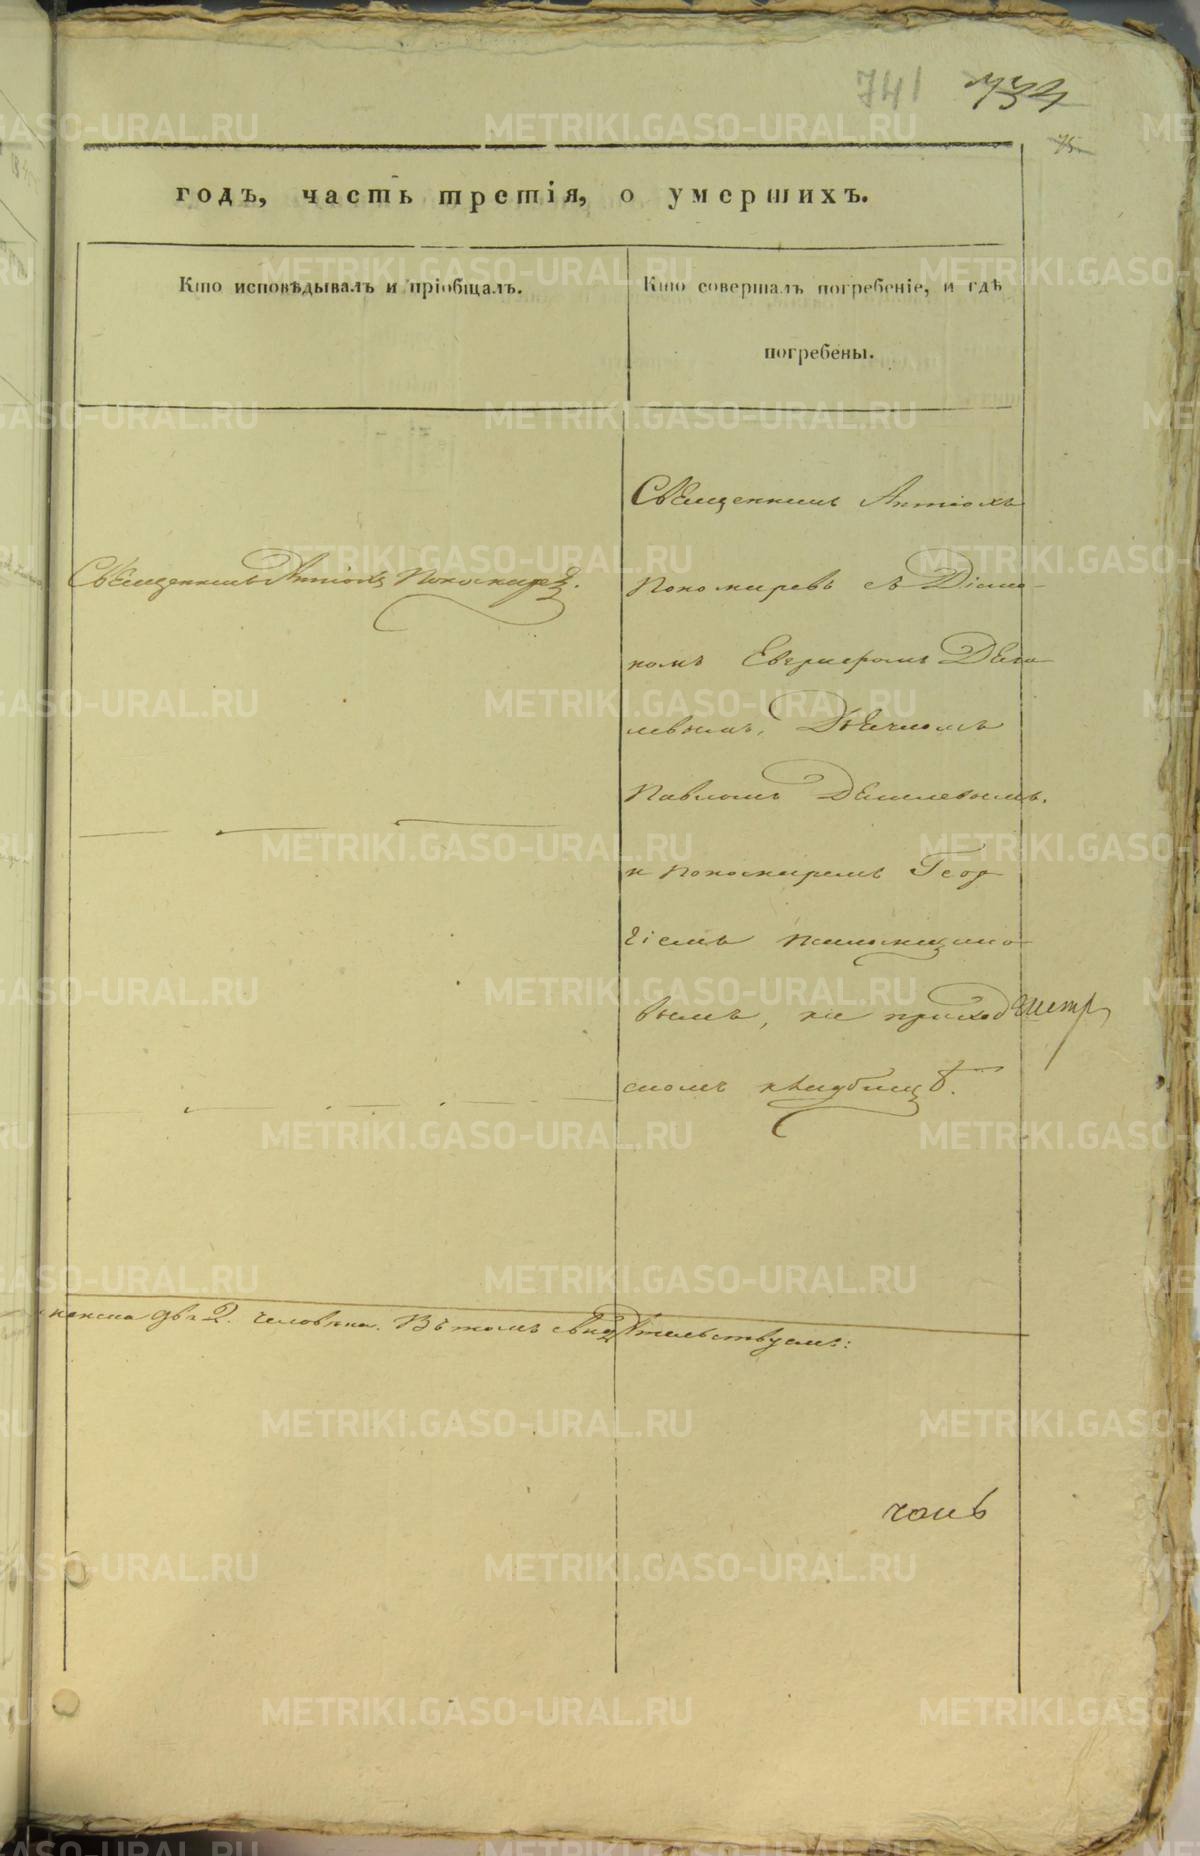 741 734
75
годъ, часть третія, о умершихъ.
Кто исповѣдывалъ и пріобщалъ.
Кто совершалъ погребеніе, и гдѣ
погребены.
Священникъ Антіохъ Пономаревъ.
Священникъ Антіохъ
Пономаревъ съ Діако-
номъ
левымъ, Дьячкомъ
Павломъ
и Пономаремъ Геор
гіемъ
вымъ, на приход
скомъ кладбищѣ.
два 2. человѣка. Въ томъ свидѣтельствуемъ:
METRIKI.GASO-URAL.RU